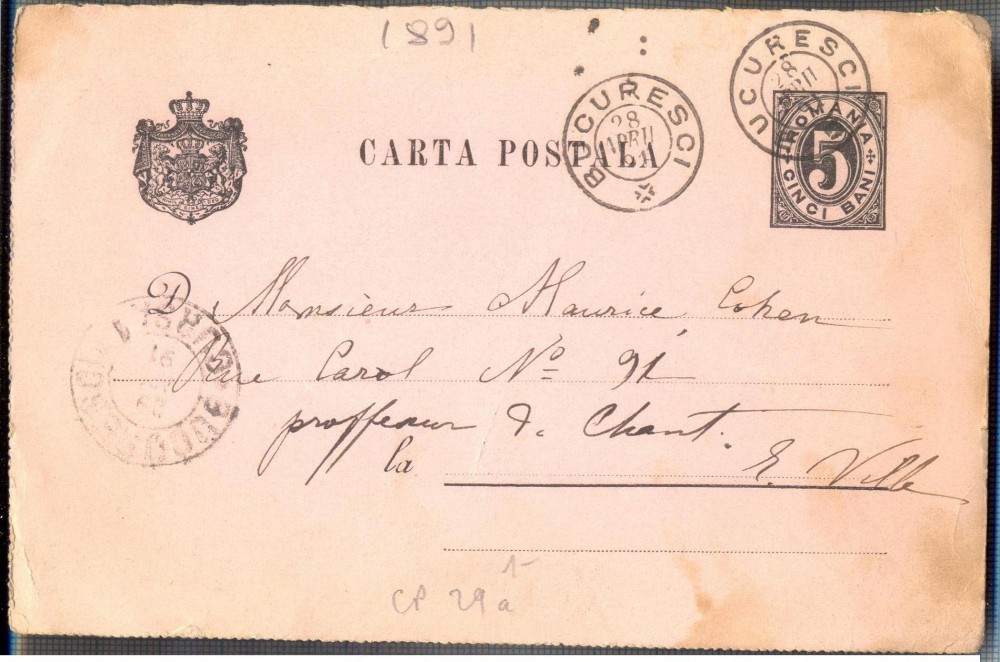 1891
BUCURESCI
28
APRIL
91
UCURESCI
28
ROMANIA
5
CINCI BANI
CARTA POSTALA
D. Monsieur Maurice Cohen
Rue Carol No 91
proffeseur d. Chant.
la
E. Ville
91
1-
CP 29a